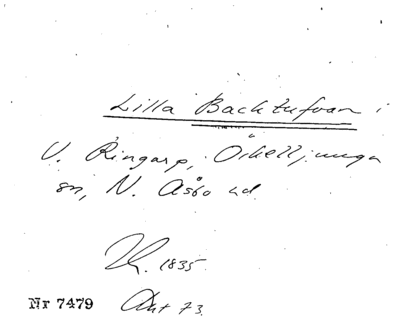 Lilla Backtufvan i
V. Ringarp, Örkelljunga
sn, N. Åsbo hd
1835.
Nr 7479 Akt 73.